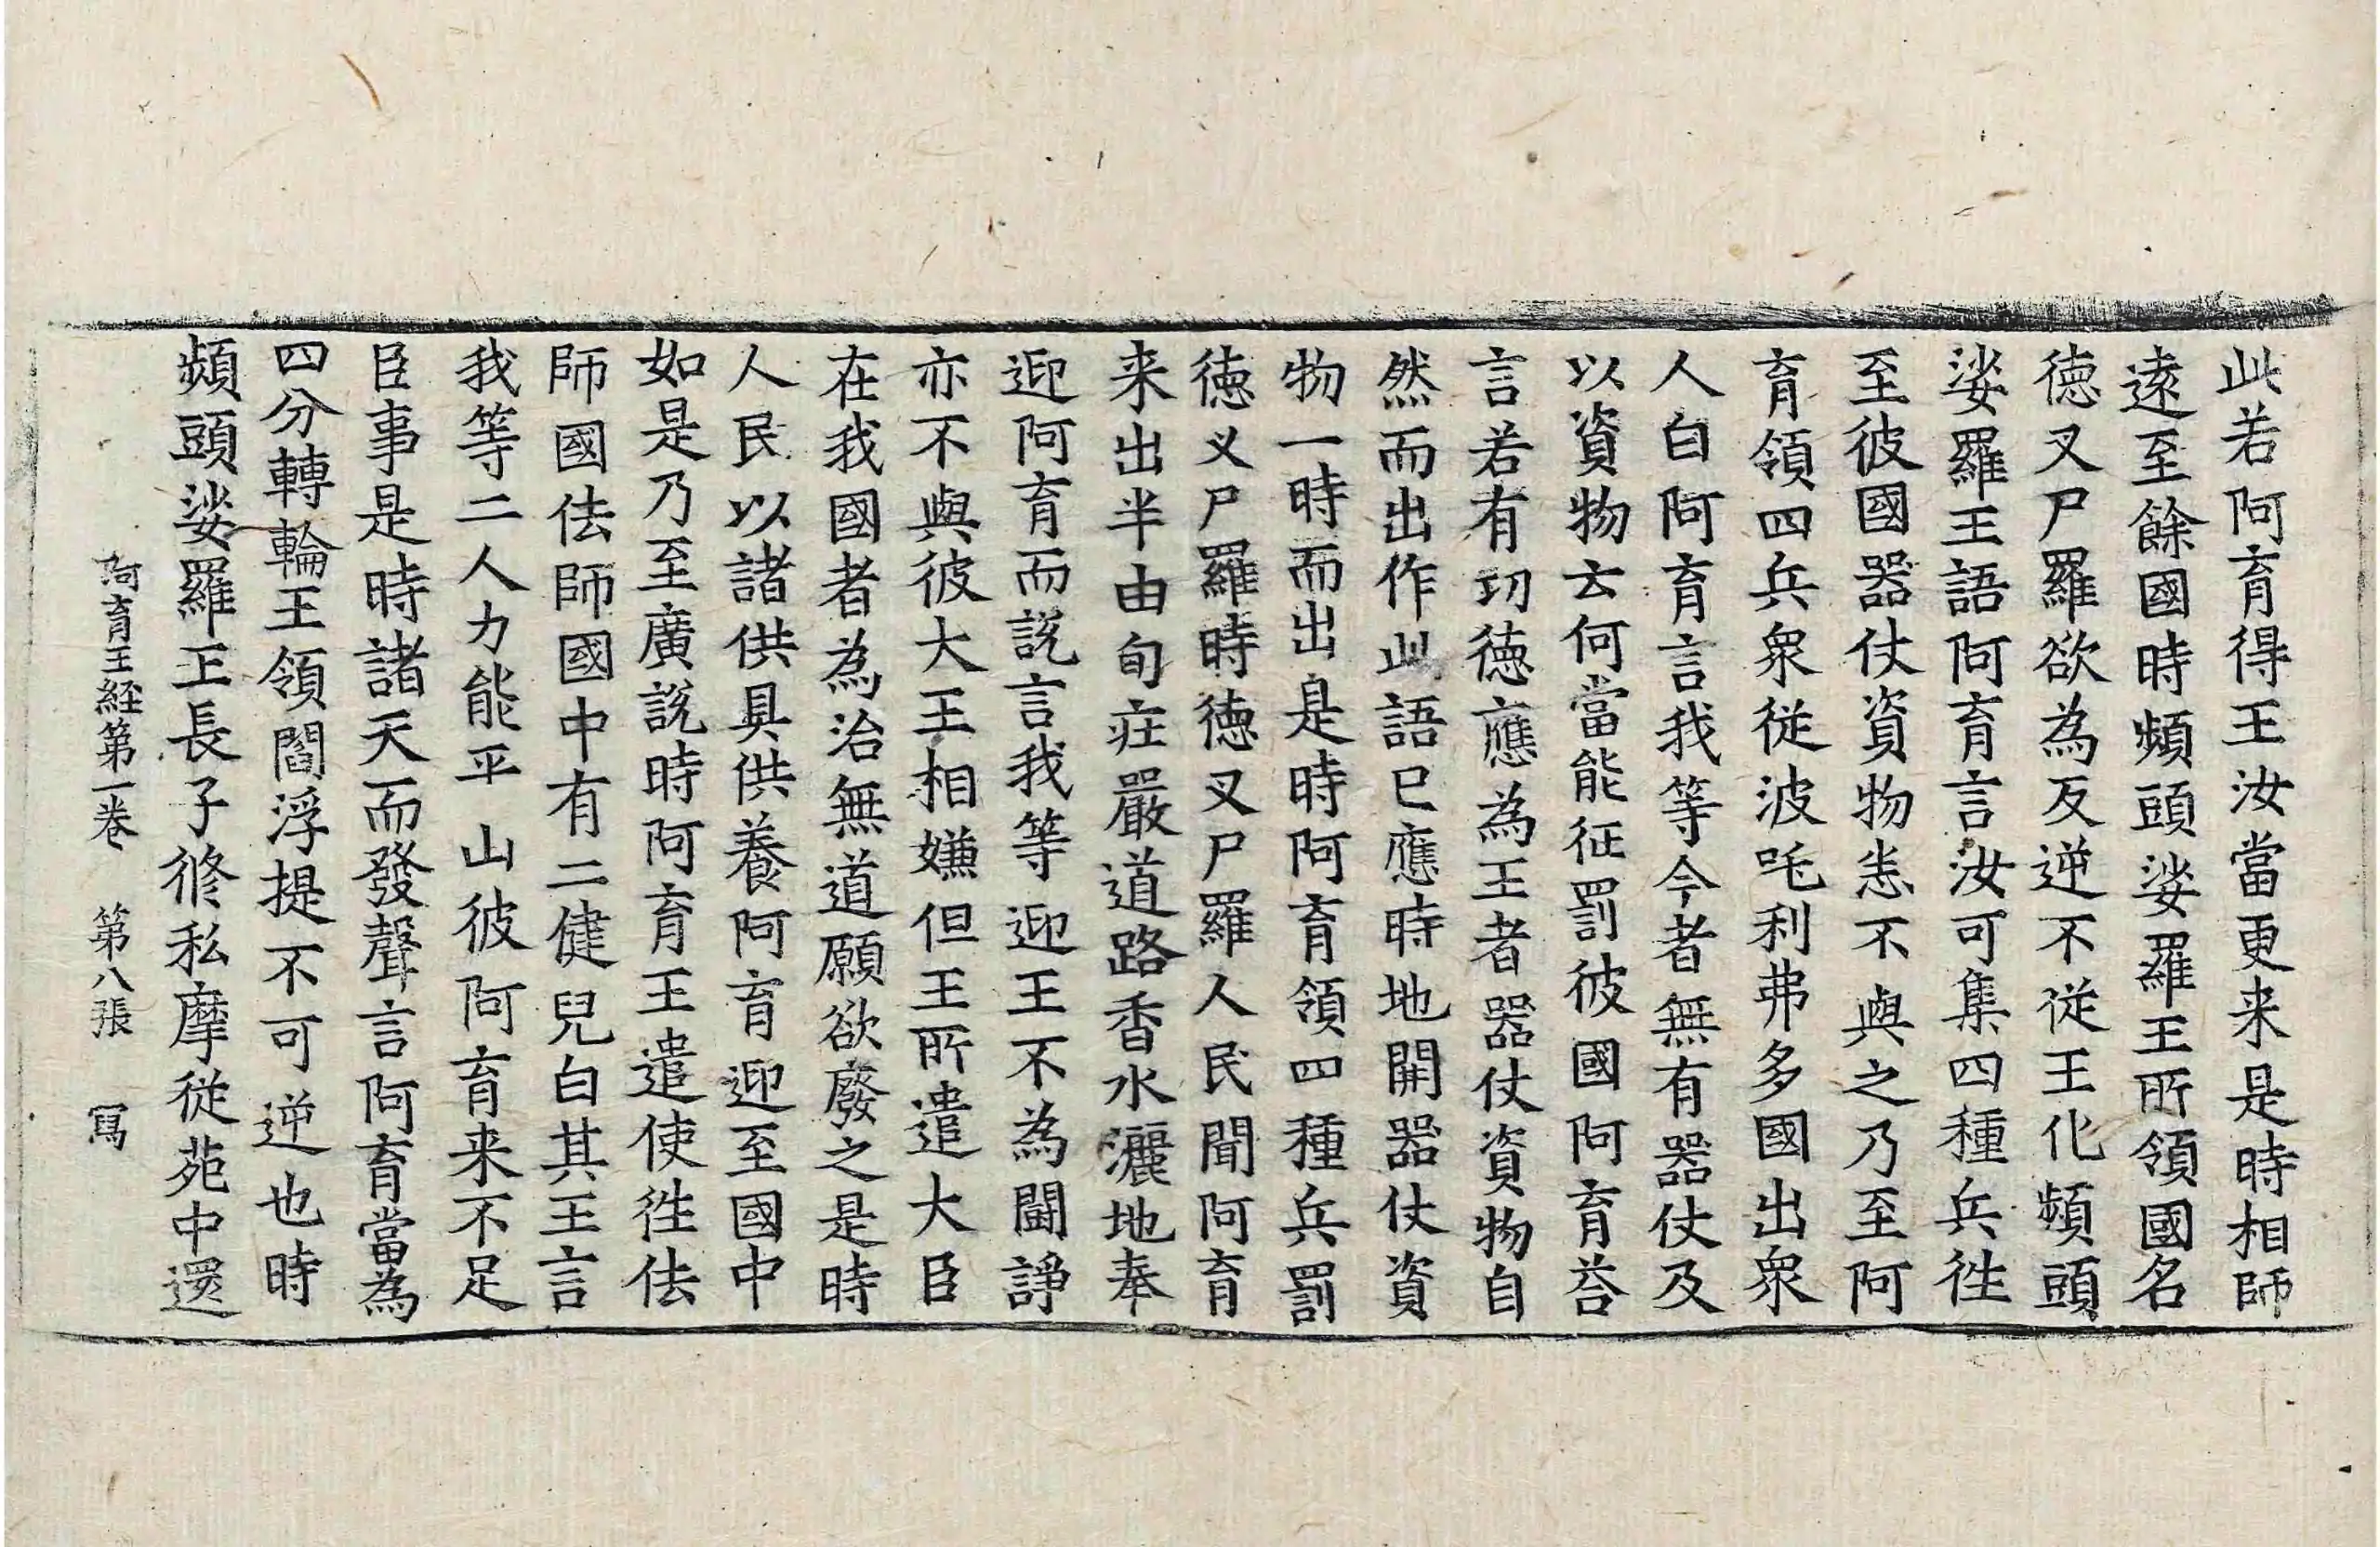 此若阿育得王汝當更来是時相師
遠至餘國時頻頭娑羅王所領國名
徳叉尸羅欲為反逆不従王化頻頭
娑羅王語阿育言汝可集四種兵徃
至彼國器仗資物恚不與之乃至阿
育領四兵衆従波吒利弗多國出衆
人白阿育言我等今者無有器仗及
以資物云何當能征罰彼國阿育荅
言若有功徳應為王者器仗資物自
然而出作此語已應時地開器仗資
物一時而出是時阿育領四種兵罰
徳叉尸羅時徳叉尸羅人民聞阿育
来出半由旬庄嚴道路香水灑地奉
迎阿育而説言我等迎王不為鬪諍
亦不與彼大王相嫌但王所遣大臣
在我國者為治無道願欲廢之是時
人民以諸供具供養阿育迎至國中
如是乃至廣説時阿育王遣使徃佉
師國佉師國中有二健兒白其王言
我等二人力能平山彼阿育来不足
臣事是時諸天而發聲言阿育當為
四分轉輪王領閻浮提不可逆也時
頻頭娑羅王長子修私摩従苑中還
阿育王経第一巻 第八張 冩